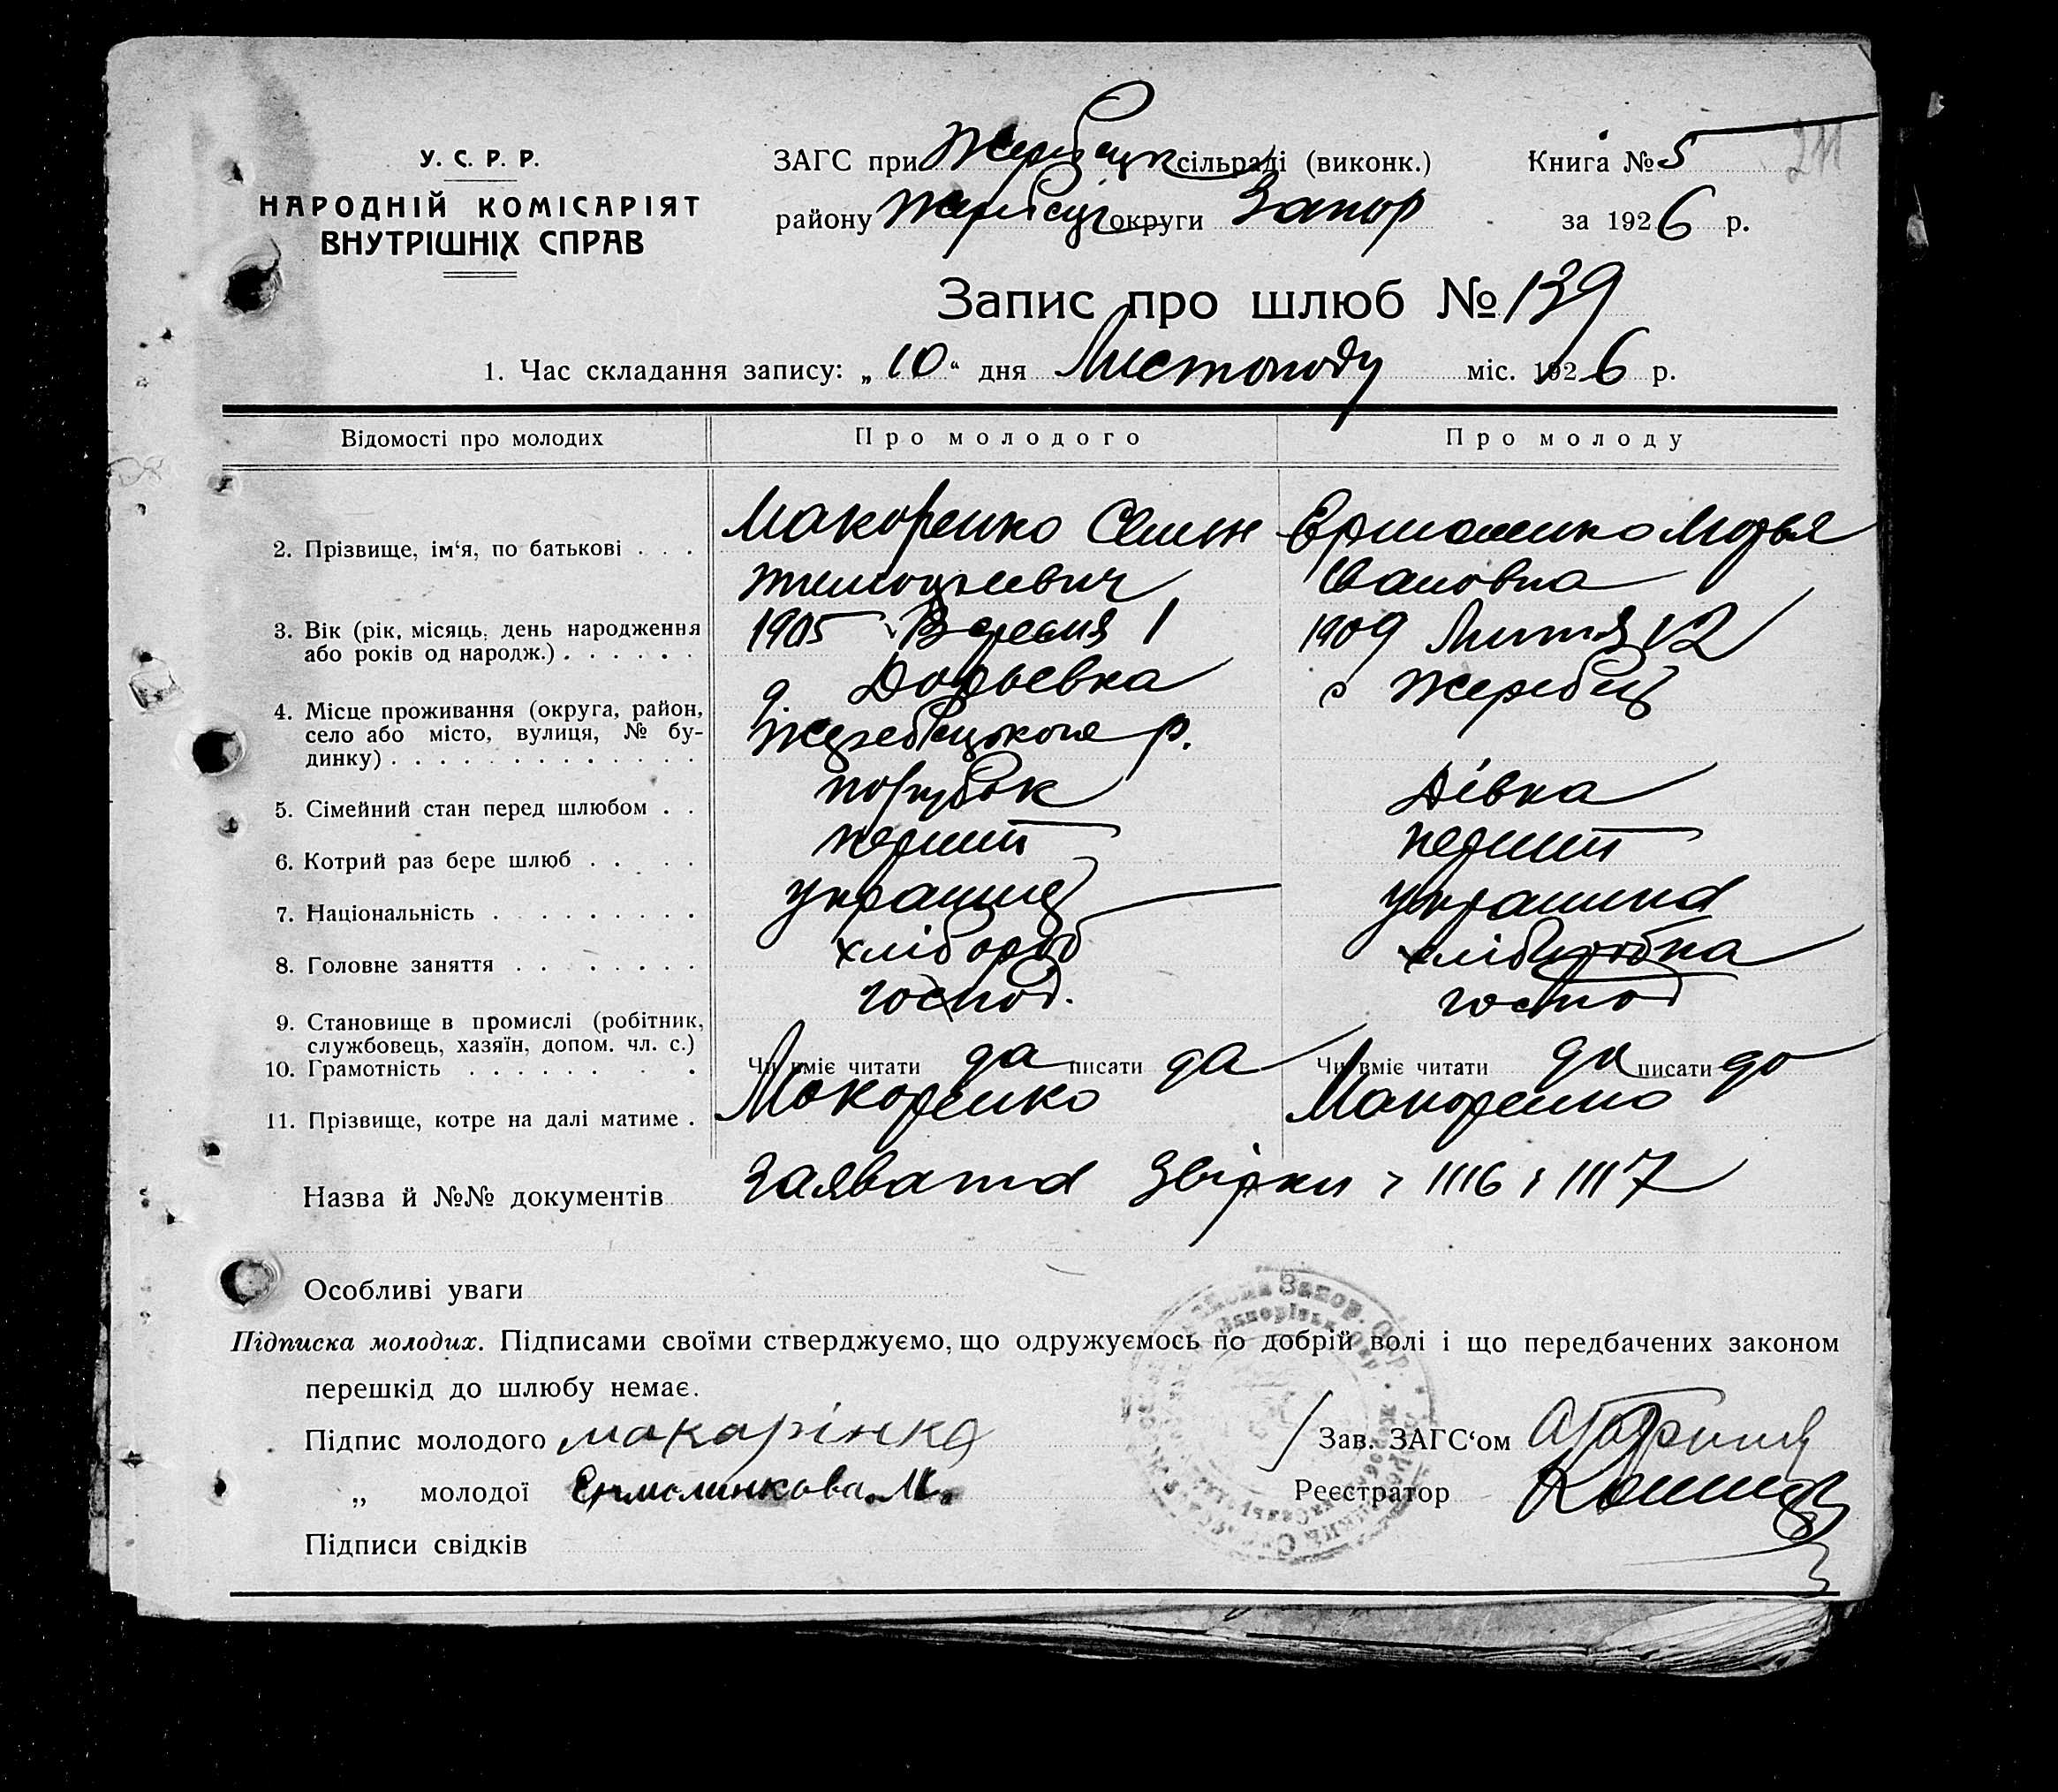 У. С. Р. Р.
НАРОДНІЙ КОМІСАРІЯТ
ВНУТРІШНІХ СПРАВ
ЗАГС при Жеребецк сільраді (виконк.)
Книга № 5
району округи Запор
за 1926 р.
Запис про шлюб № 139
1. Час складання запису: „10“ дня Листопаду міс. 1926 р.
Відомості про молодих
Про молодого
Про молоду
2. Прізвище, ім‘я, по батькові . . .
Макоренко Семен
Марья
Ивановна
3. Вік (рік, місяць, день народження
або років од народж.) . . . . . .
1905 Вересня 1
1909 12
4. Місце проживання (округа, район,
село або місто, вулиця, № бу-
динку) . . . . . . . . . . . . .
Дорьевка
Жеребецького р.
с Жеребец
5. Сімейний стан перед шлюбом . .
парубок
Дівка
6. Котрий раз бере шлюб . . . .
перший
перший
7. Національність . . . . . . . . .
украинец
8. Головне заняття . . . . . . . .
хлібороб
9. Становище в промислі (робітник,
службовець, хазяїн, допом. чл. с.)
господ.
господ
10. Грамотність . . . . . . . .
Чи вміє читати да писати да
Чи вміє читати да писати да
11. Прізвище, котре на далі матиме .
Макоренко
Макоренко
Назва й №№ документів
1116 і 1117
Особливі уваги
Підписка молодих. Підписами своїми стверджуємо, що одружуємось по добрій волі і що передбачених законом
перешкід до шлюбу немає.
Підпис молодого макарінко
Зав. ЗАГС‘ом
„ молодої М.
Реєстратор
Підписи свідків